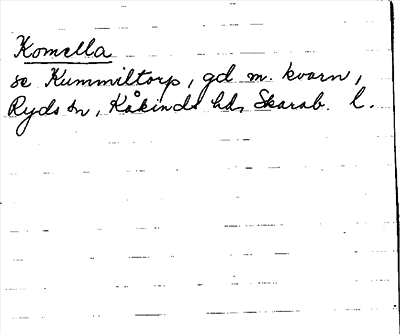 Komella
se Kummiltorp, gd m. kvarn,
Ryds sn, Kåkinds hd, Skarab. l.